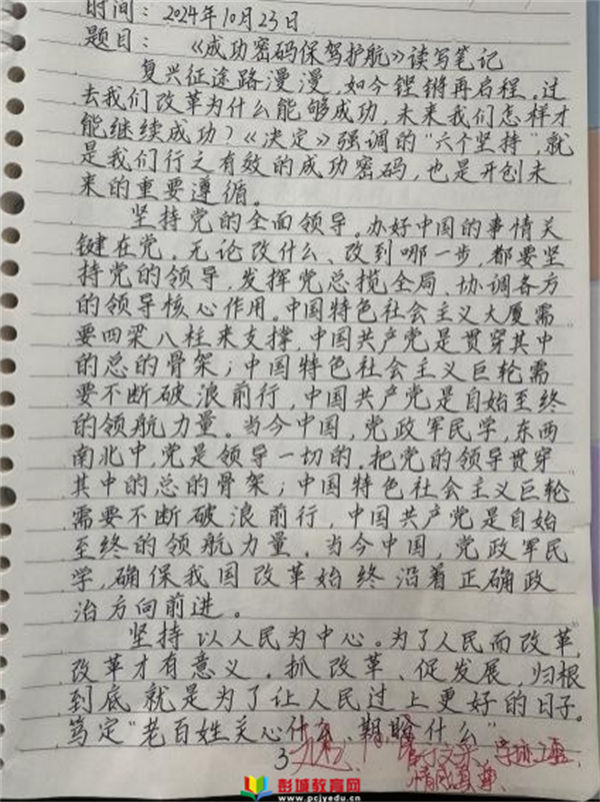 时间：2024年10月23日
题目：《成功密码保驾护航》读写笔记
复兴征途路漫漫，如今铿锵再启程。过
去我们改革为什么能够成功，未来我们怎样才
能继续成功）《决定》强调的“六个坚持”，就
是我们行之有效的成功密码，也是开创未
来的重要遵循。
坚持党的全面领导。办好中国的事情关
键在党。无论改什么、改到哪一步，都要坚
持党的领导，发挥党总揽全局、协调各方
的领导核心作用。中国特色社会主义大厦需
要四梁八柱来支撑，中国共产党是贯穿其中
的总的骨架；中国特色社会主义巨轮需
要不断破浪前行，中国共产党是自始至终
的领航力量。当今中国，党政军民学，东西
南北中，党是领导一切的。把党的领导贯穿
其中的总的骨架；中国特色社会主义巨轮
需要不断破浪前行，中国共产党是自始
至终的领航力量。当今中国，党政军民
学，确保我国改革始终沿着正确政
治方向前进。
坚持以人民为中心。为了人民而改革，
改革才有意义。抓改革、促发展，归根
到底就是为了让人民过上更好的日子。
笃定“老百姓关心什么、期盼什么”
3
彭城教育网
www.pcjyedu.cn